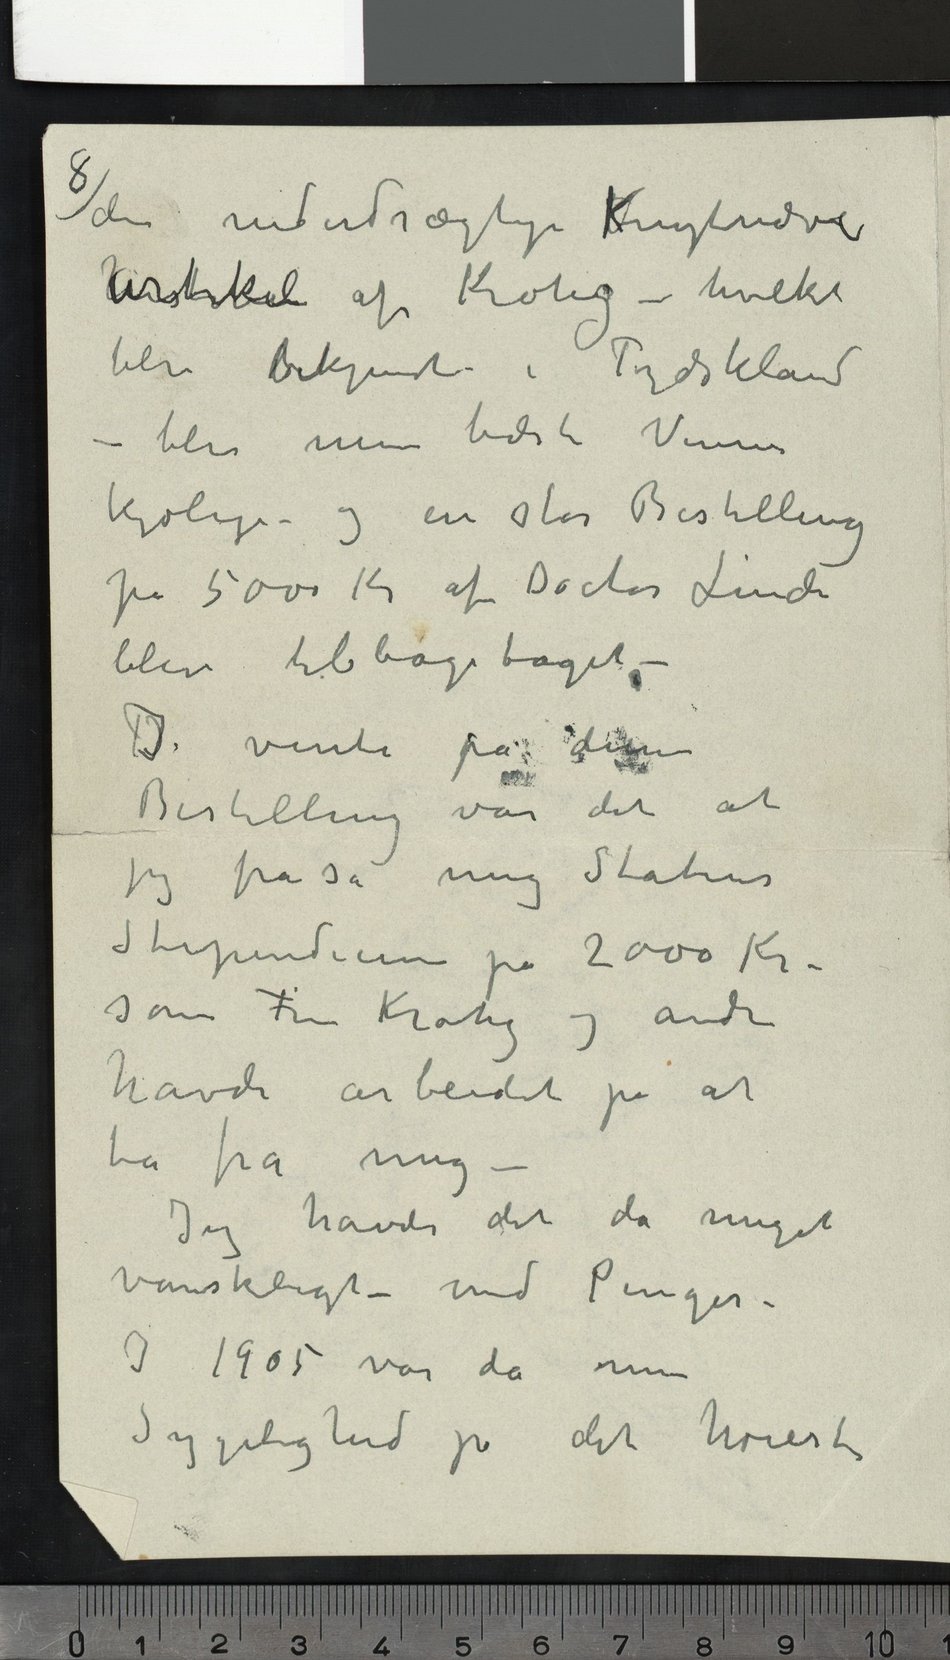 8/
den nederdrægtige Knytnæve
Artikel af Krohg – hvilket
blev bekjendt i Tydskland
– blev mine bedste Venner
kjølige – og en stor Bestilling
på 5000 Kr af Doctor Linde
blev tilbagetaget –
I vente på denne
Bestilling var det at
jeg frasa mig Statens
Stipendium på 2000 Kr –
som Fru Krohg og andre
havde arbeidet på at
ta fra mig –
Jeg havde det da meget
vanskeligt – med Penger –
I 1905 var da min
Sygelighed på det høieste
0 1 2 3 4 5 6 7 8 9 10 1